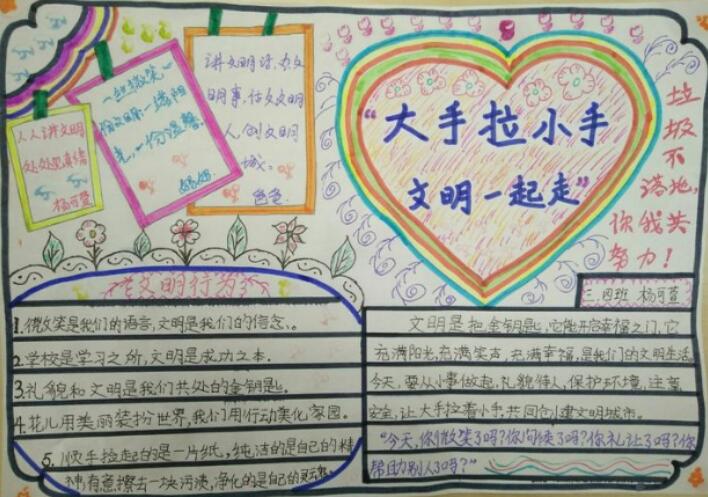 人人讲文明
处处见真情
杨可萱
一起微笑
一份温馨
妈妈
讲文明话，办文
明事，做文明
人，创文明
城。
爸爸
“大手拉小手
文明一起走”
垃圾不落地，
你我共
努力！
三.四班 杨可萱
文明行为
1.微笑是我们的语言，文明是我们的信念。
2.学校是学习之所，文明是成功之本。
3.礼貌和文明是我们共处的金钥匙。
4.花儿用美丽装扮世界，我们用行动美化家园。
5.顺手捡起的是一片纸，纯洁的是自己的精
神有意擦去一块污渍，净化的是自己的灵魂。
文明是把金钥匙，它能开启幸福之门，它
充满阳光，充满笑声，充满幸福，是我们的文明生活。
今天，要从小事做起，礼貌待人，保护环境，注意
安全，让大手拉着小手，共同创建文明城市。
“今天，你微笑了吗？你问候了吗？你礼让了吗？你
帮助别人了吗？”